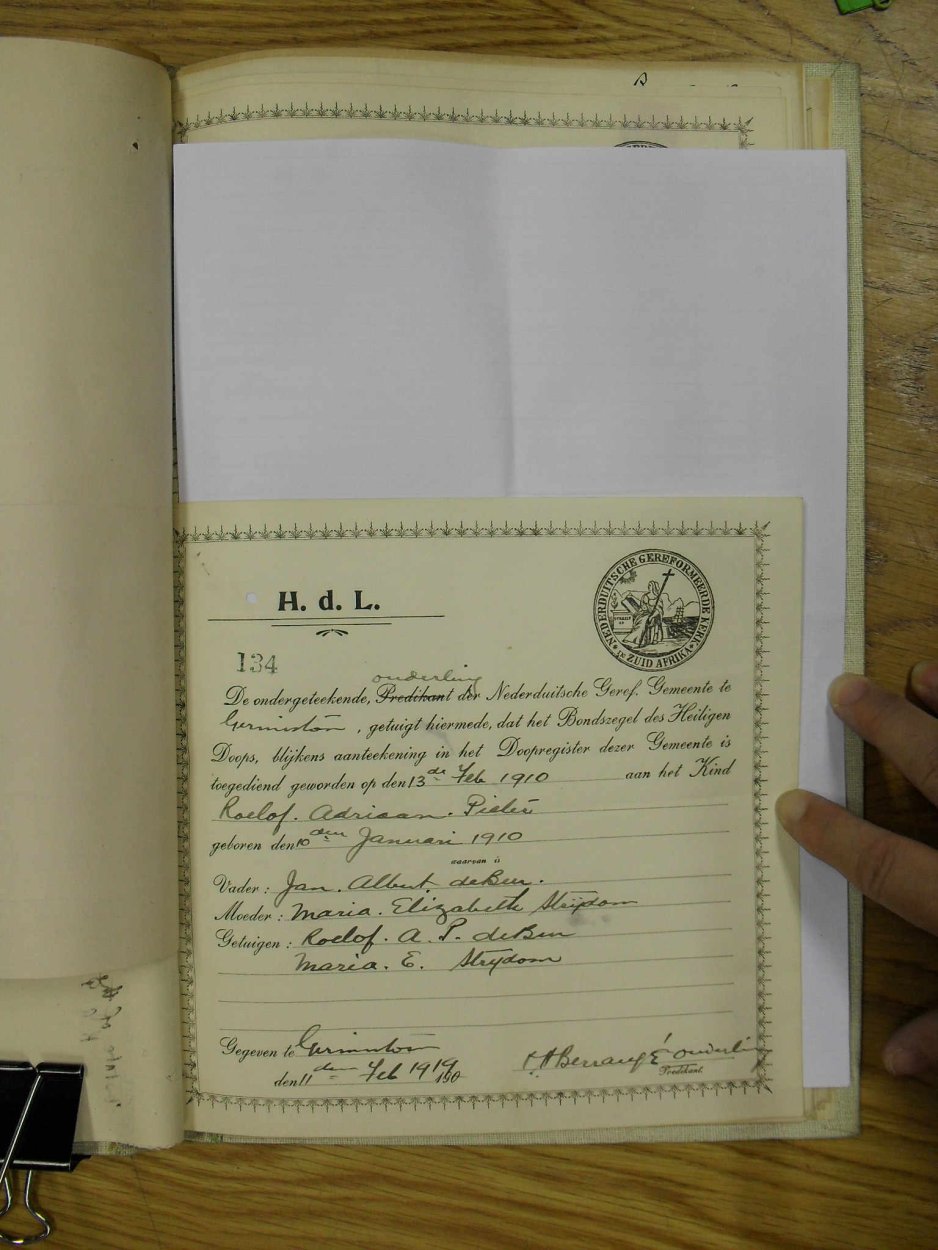 B
NEDERDUITSCHE GEREFORMEERDE KERK IN ZUID AFRIKA
H. d. L.
134
ouderling
De ondergeteekende, Predikant der Nederduitsche Geref. Gemeente te
Germiston, getuigt hiermede, dat het Bondszegel des Heiligen
Doops, blijkens aanteekening in het Doopregister dezer Gemeente is
toegediend geworden op den 13de Feb 1910 aan het Kind
Roelof. Adriaan. Pieter
geboren den 10den Januari 1910
waarvan is
Vader: Jan. Albert. de Beer.
Moeder: Maria. Elizabeth Strydom
Getuigen: Roelof. A. P. de Beer
Maria. E. Strydom
Gegeven te Germiston
den 11den Feb 1919 190 Berrangé ouderling
Predikant.